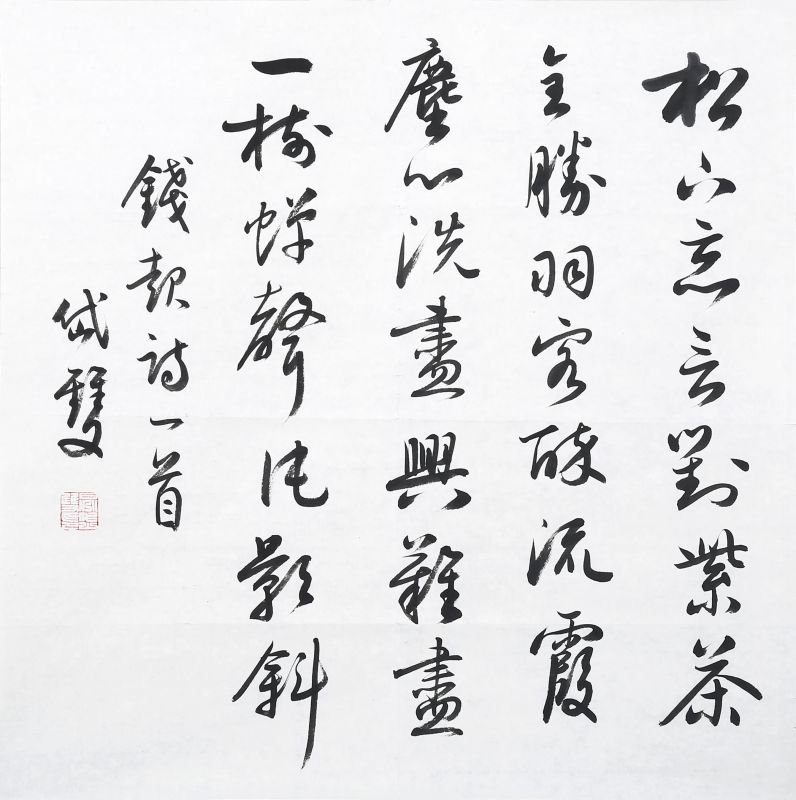 松下忘言對紫茶
全勝羽客醉流霞
塵心洗盡興難盡
一樹蟬聲片影斜
錢起詩一首